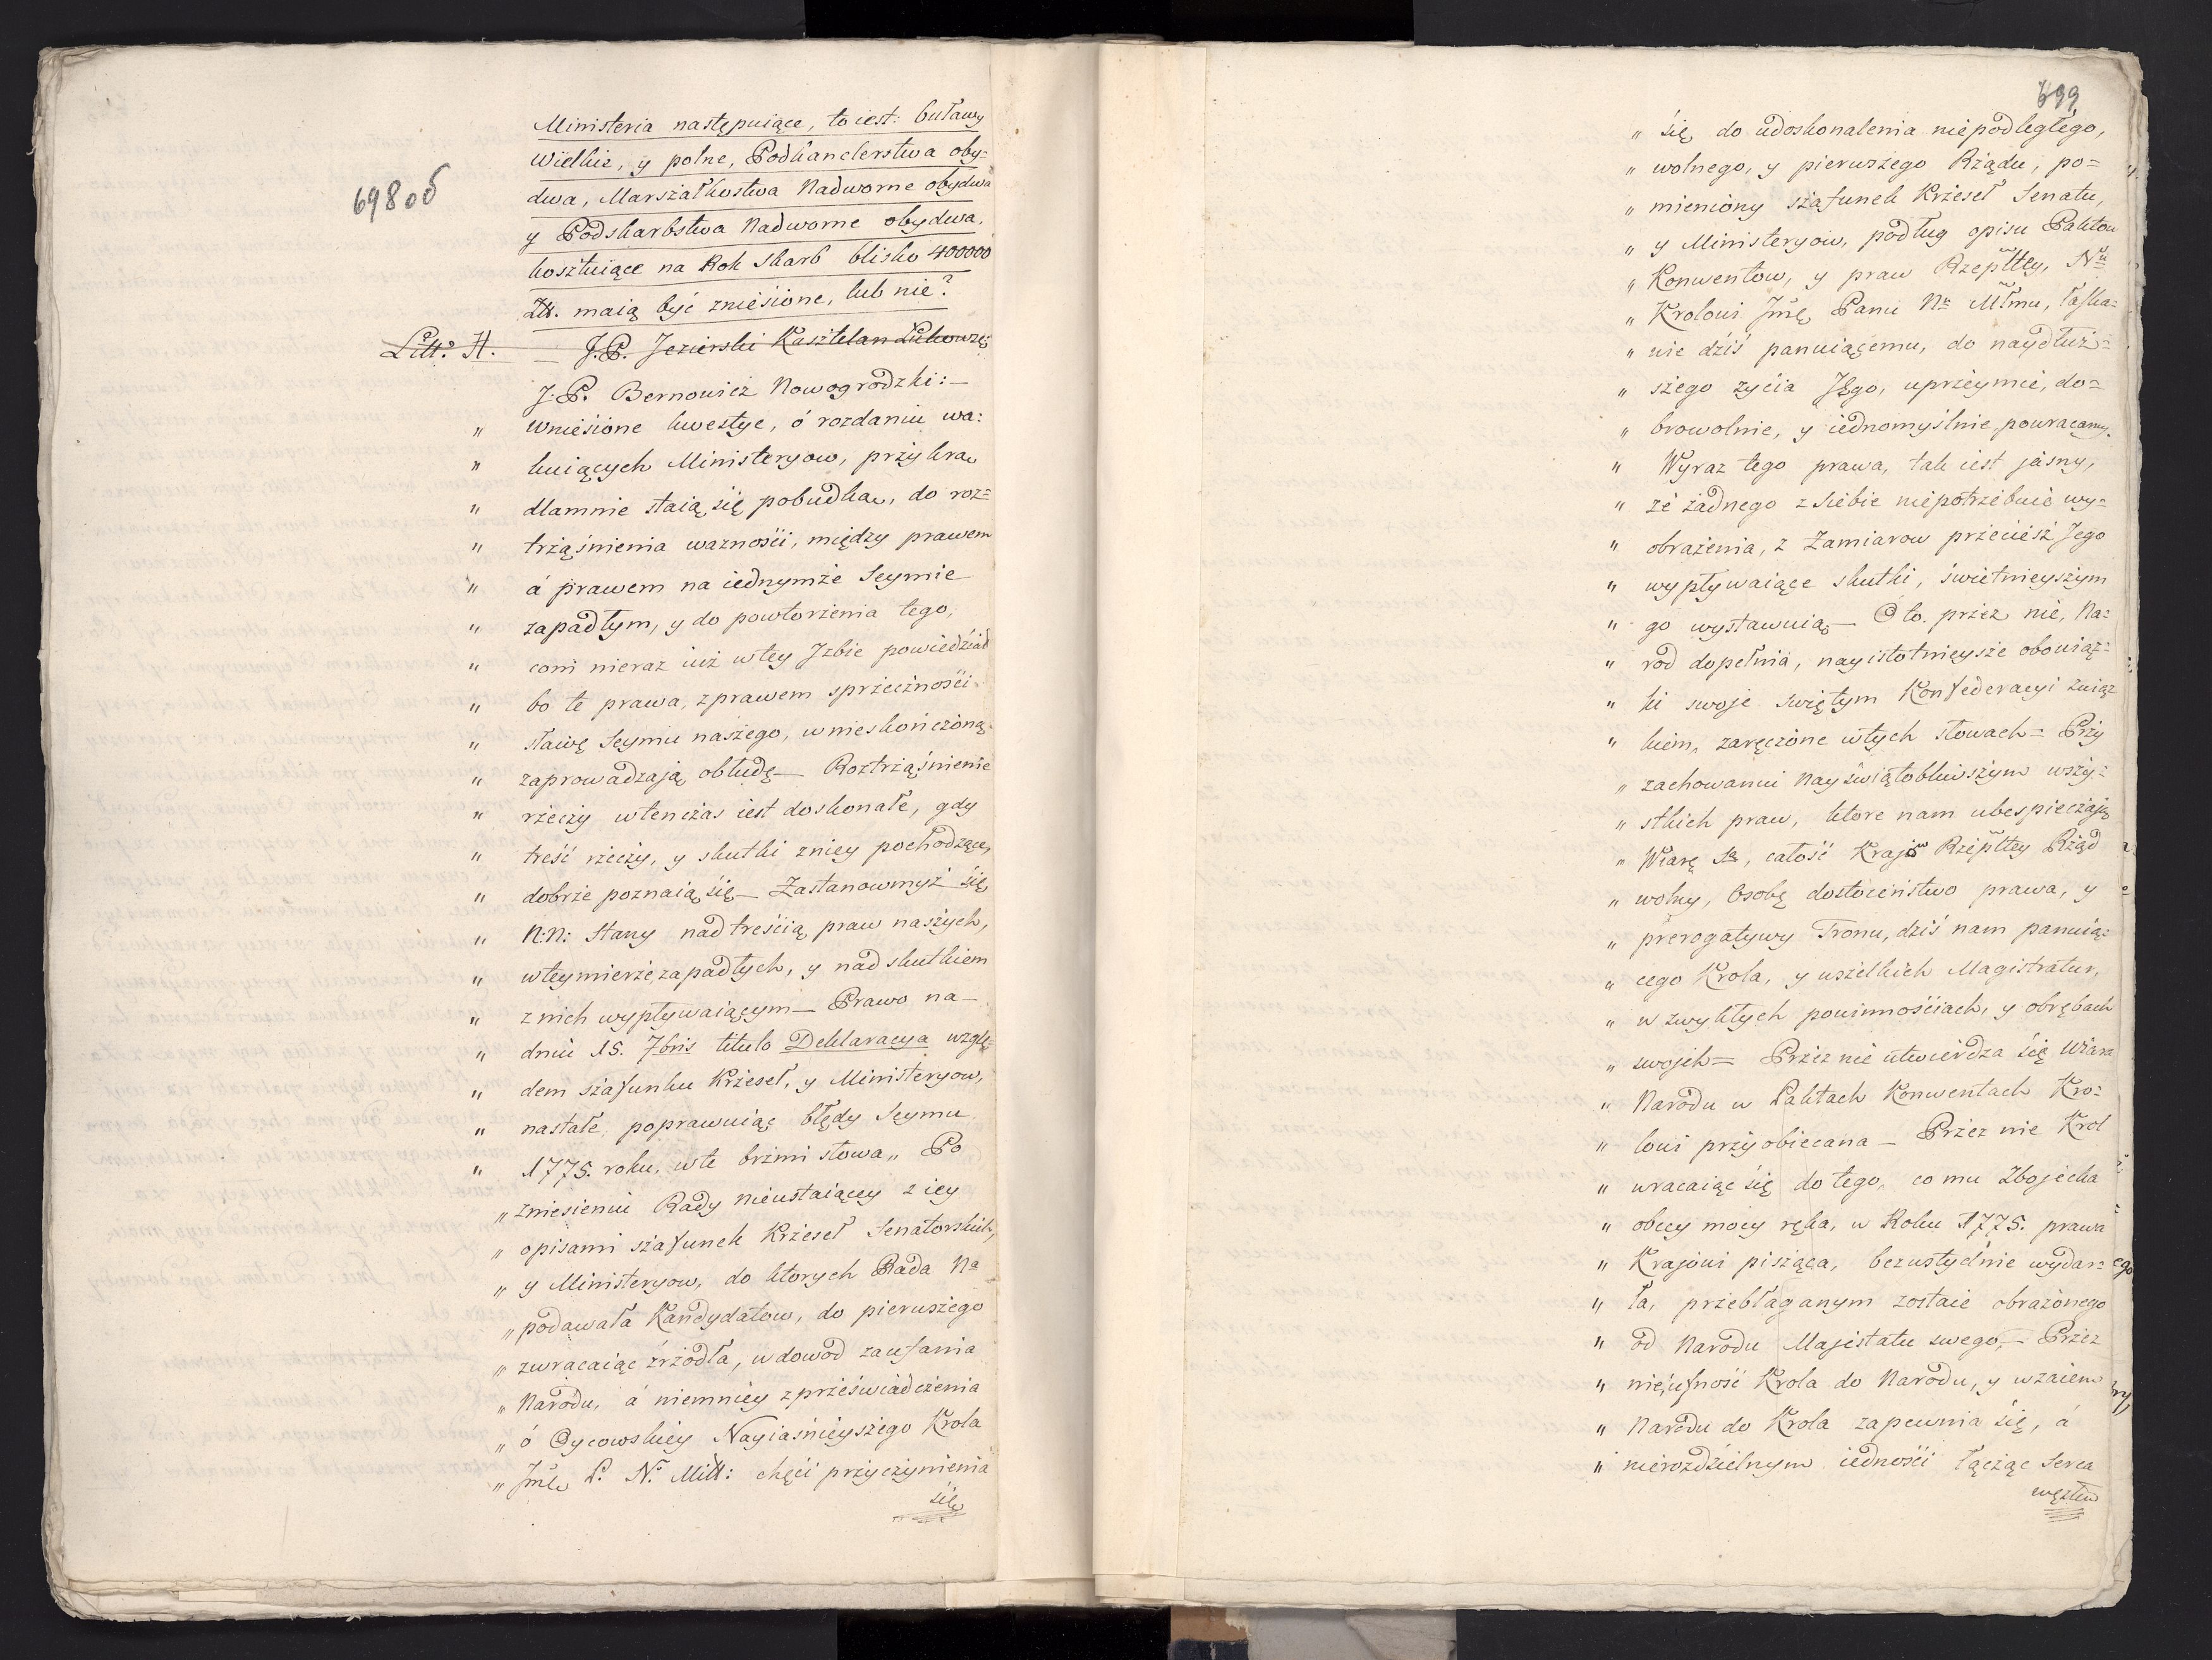 698 об
Ministeria następuiące, to iest: buławy
Wielkie, y polne, Podkanclerstwa oby=
dwa, Marszałkostwa Nadworne obydwa
y Podskarbstwa Nadworne obydwa,
kosztuiące na Rok skarb blisko 400000
Zł. maią być zniesione, lub nie?
Litt: H. — J.P. Jezierski Kasztelan Łukowzki
J.P. Bernowicz Nowogrodzki:—
" Wniesione kwestye, ó rozdaniu wa:
" kuiących Ministeryow, przykra
" dlamnie staią się pobudka, do roz=
" trząśnienia waznośći, między prawem
" á prawem na iednymże Seymie
" zapadłym, y do powtorzenia tego,
" com nieraz iuż wtey Jzbie powiedział
" bo te prawa, zprawem sprzecznośći
" sławę Seymu naszego, wnieskończoną
" zaprowadzają obłudę — Roztrząśnienie
" rzeczy wtenczas iest doskonałe, gdy
" treść rzeczy, y skutki zniey pochodzące,
" dobrze poznaią się — Zastanowmyż się
" N:N: Stany nad treścią praw naszych,
" wteymierze zapadłych, y nad skutkiem
" z nich wypływaiącym — Prawo na—
" dniu 15. 7bris titulo Deklaracya wzglę=
" dem szafunku Krzeseł, y Ministeryow,
" nastałe, poprawuiąc błędy Seymu
" 1775. roku, wte brzmi słowa „ Po
" zniesieniu Rady Nieustaiącey z iey
" opisami szafunek Krzeseł Senatorskich,
" y Ministeryow, do ktorych Rada Na
" podawała Kandydatow, do pierwszego
" zwracaiąc źrzodła, w dowod zaufania
" Narodu, á niemniey z przeświadczenia
" ó Oycowskiey Nayiaśnieyszego Krola
" Jmći P. N. Miłł: chęci przyczynienia
się
699
" się, do udoskonalenia niepodległego,
" wolnego, y pierwszego Rządu, po=
" mieniony szafunek Krzeseł Senatu,
" y Ministeryow, podług opisu Paktow
" Konwentow, y praw Rzepltey, Nu
" Krolowi Jmć, Panu N: Młmu, łaska=
" wie dziś panuiącemu, do naydłuż=
" szego zyćia Jego, uprzeymie, do=
" browolnie, y iednomyślnie powracamy.
" Wyraz tego prawa, tak iest jasny,
" że żadnego z siebie niepotrzebuie wy=
" obrażenia, z Zamiarow przecieśz Jego
" wypływaiące skutki, świetnieyszym
" go wystawuią — Oto. przez nie, Na=
" rod dopełnia, nayistotnieysze obowiąz=
" ki swoje swiętym Konfederacyi związ
" kiem, zaręczone wtych słowach = Przy
" zachowaniu Nayświątobliwszym wszy=
" stkich praw, ktore nam ubespieczają
" Wiarę Sę, całość Krajow Rzepltey Rząd
" wolny, Osobę dostoieństwo prawa, y
" prerogatywy Tronu, dziś nam panuią=
" cego Krola, y wszelkich Magistratur,
" w zwykłych powinnośćiach, y obrębach
" swojch = Przez nie utwierdza się Wiara
" Narodu w Paktach Konwentach Kro=
" lowi przyobiecana — Przez nie Krol
" wracaiąc się do tego, co mu Zbojecka
" obcey mocy ręka, w Roku 1775. prawa
" Krajowi pisząca, bezwstydnie wydar=
" ła, przebłaganym zostaie obrażonego
" od Narodu Majestatu swego, — Przez
" nie, ufność Krola do Narodu, y wzaiem
" Narodu do Krola zapewnia się, á
" nierozdzielnym iednośći łącząc serca
węzłem